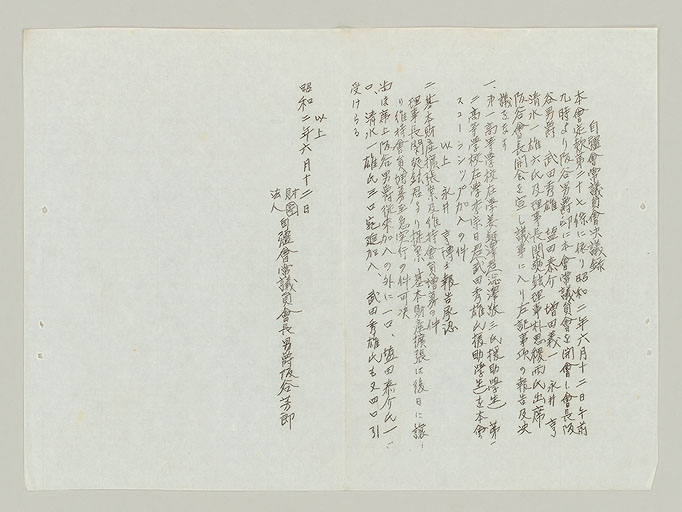 自彊會常議員會決議録
本會定款第二十七條に依り昭和二年六月十二日午前
九時より阪谷男爵邸に本會常議員會を開會し會長阪
谷男爵 武田秀雄 塩田泰介 増田義一 永井亨
清水一雄六氏及理事長関 理事朴思稷両氏出席
阪谷會長開会を宣し議事に入り左記事項の報告及決
議をなす
一、第一高等學校在學 三氏援助學生 第一
二高等學校在學 武田秀雄氏援助學生を本會
スコーラシップ加入の件
以上 永井亨博士報告承認
二、基本財産擴張案及維持會員増募の件
理事長関 より提案 基本財産擴張は後日に譲
り維持會員増募至急実行の件可決
尚ほ席上阪谷男爵従来加入の外に一口、塩田泰介氏一
口、清水一雄氏三口宛追加入、武田秀雄氏も又四口引
受けらる
以上
昭和二年六月十二日
財團
法人 自彊會常議員會長男爵阪谷芳郎